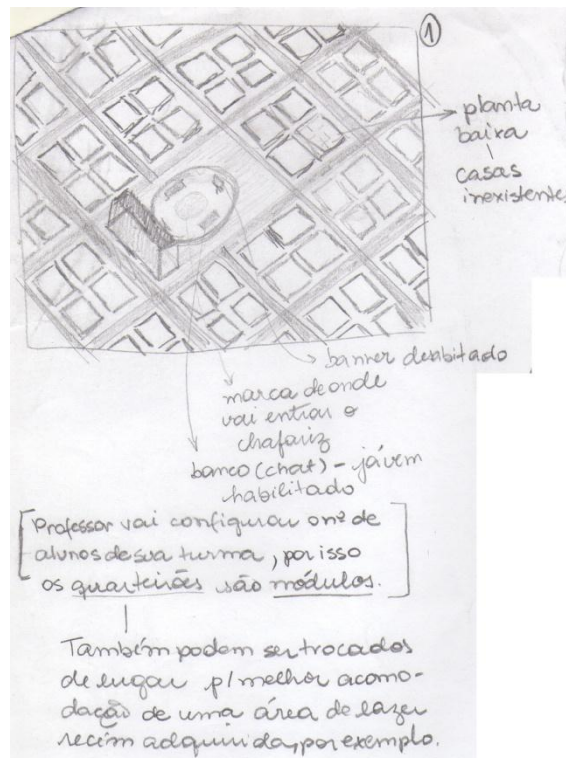 1
planta
baixa
casas
inexistentes
banner desabitado
marca de onde
vai entrar o
chafariz
banco (chat) - já vem
habilitado
[Professor vai configurar o nº de
alunos de sua turma, por isso
os quarteirões são módulos.]
Também podem ser trocados
de lugar p/ melhor acomo-
dação de uma área de lazer
recém adquirida, por exemplo.